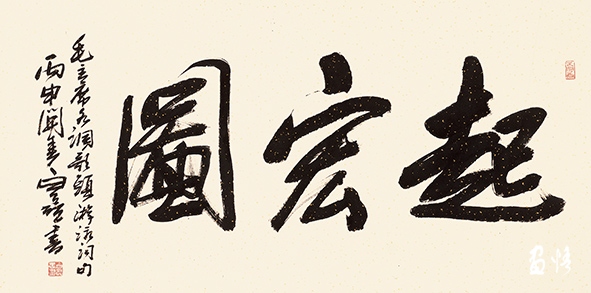 起宏圖
毛主席水調歌頭游泳詞句
丙申開春 書